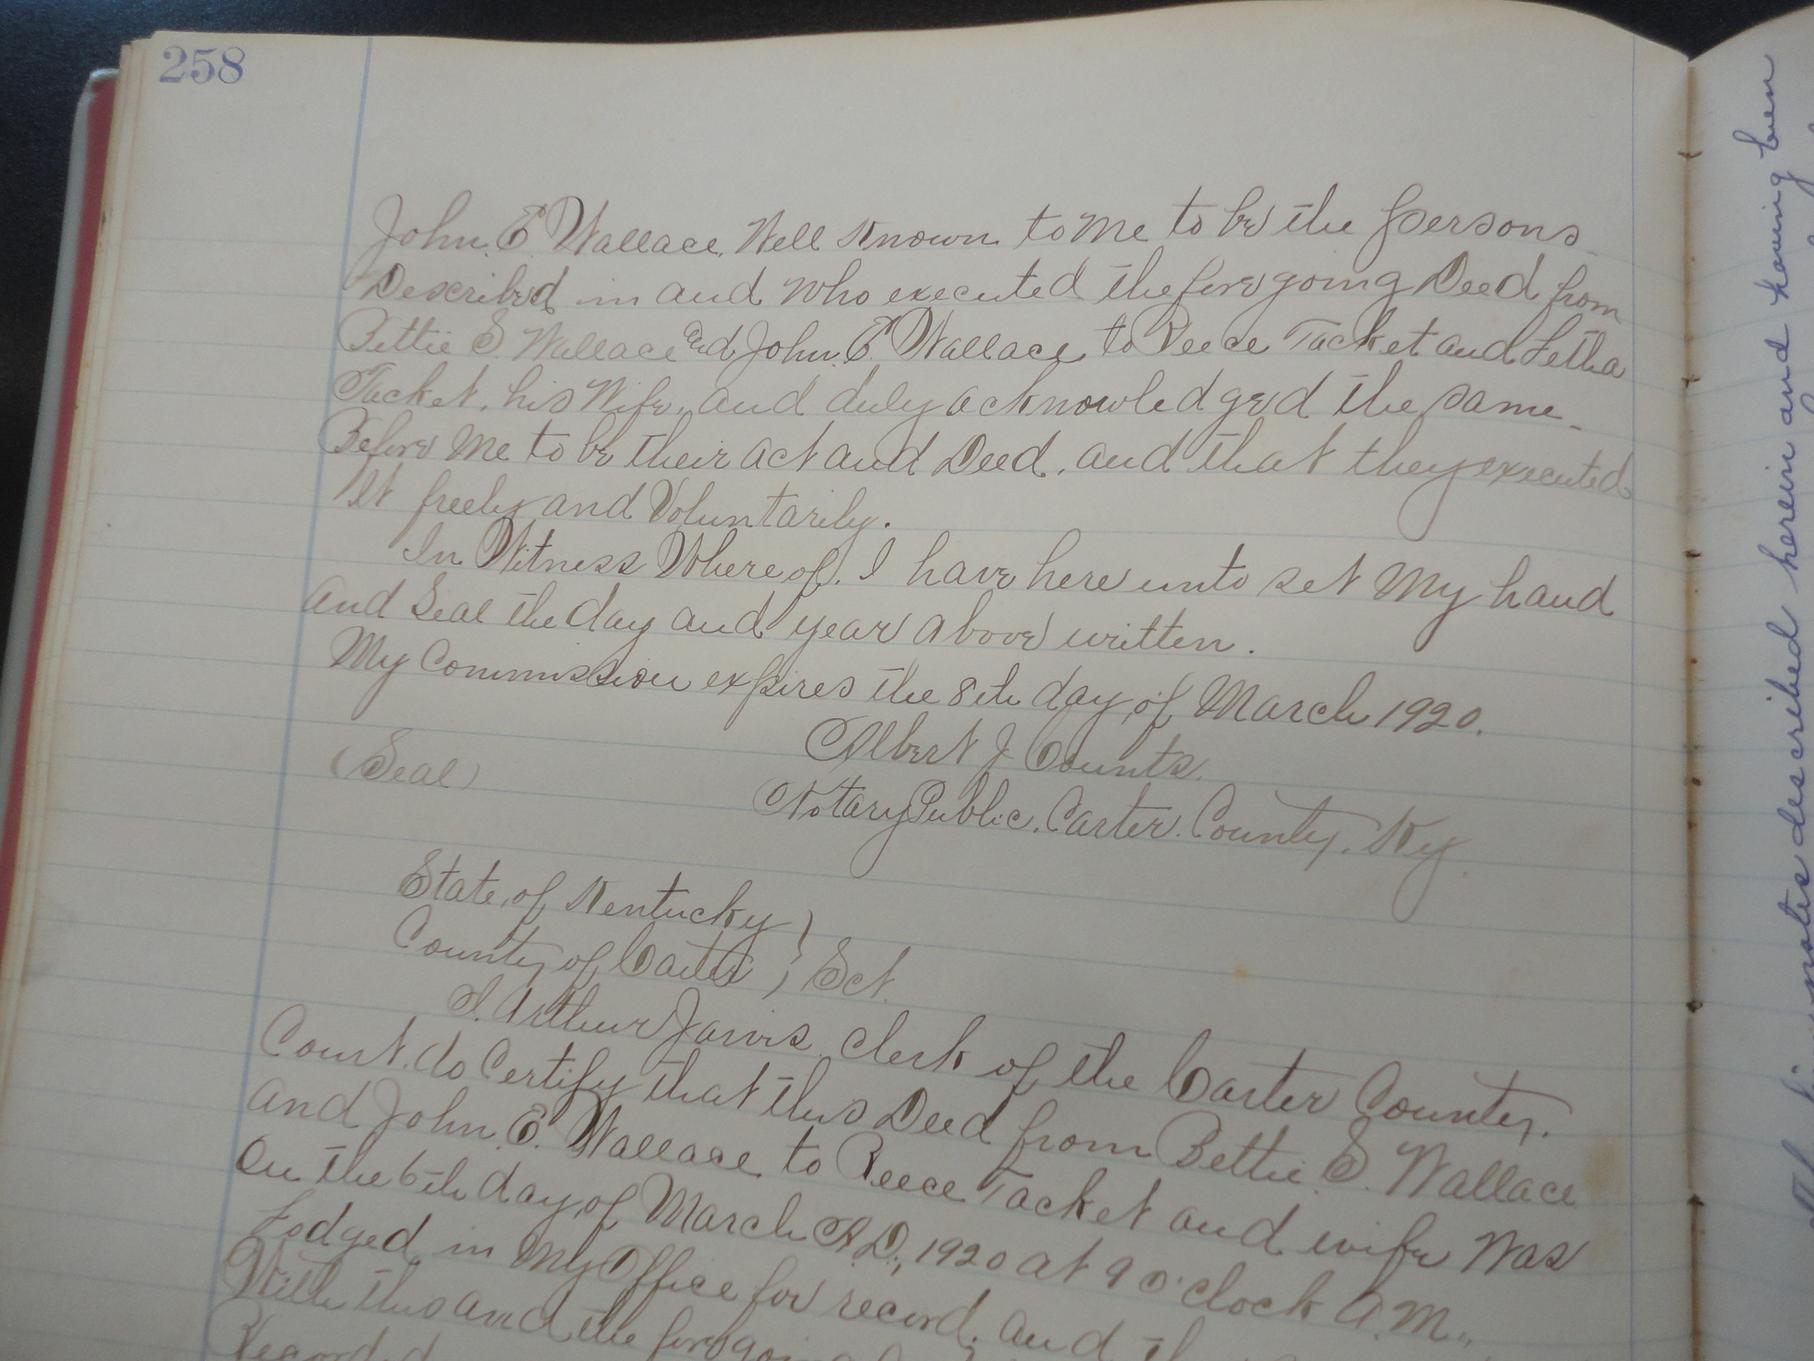 258
John. E. Wallace, Well Known to Me to be the persons
Described in and Who executed the fore going Deed from
Bettie S. Wallace and John. E. Wallace to Reece Tacket and Letha
Tacket, his Wife, and duly acknowledged the same
Before Me to be their act and Deed, and that they executed
It freely and Voluntarily.
In Witness Where of, I have here unto set My hand
and Seal the day and year above written.
My Commission expires the 8th day of March 1920.
Albert J Counts
(Seal)
Notary Public. Carter. County, Ky.
State, of Kentucky
County of Carter } Sct.
I. Arthur Jarvis, Clerk of the Carter County.
Court. do Certify that this Deed from Bettie. S. Wallace
and John. E. Wallace to Reece Tacket and wife Was
On the 6th day, of March A.D., 1920 at 9 o'clock A.M.,
Lodged in My Office for record, and
With this and the foregoing
Recorded
notes described herein and having been